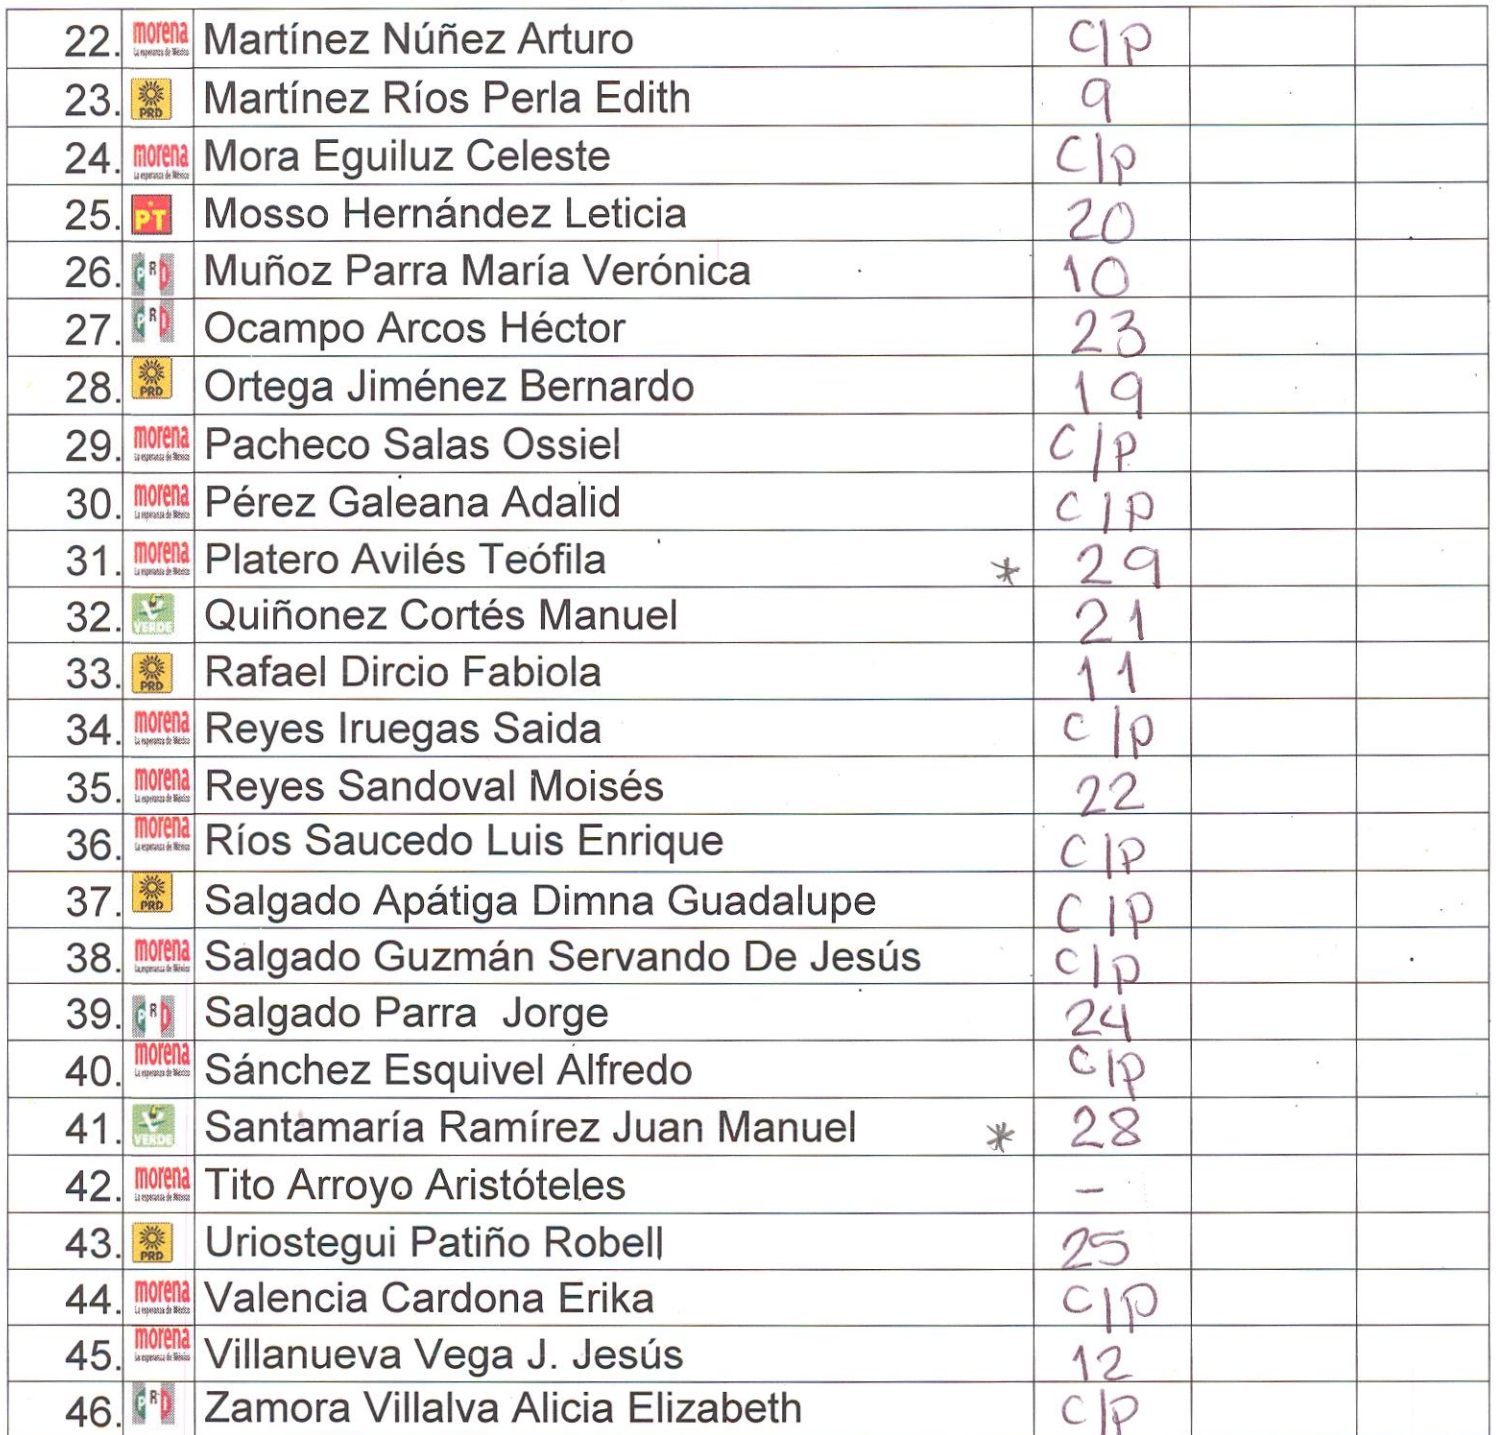 22. morena La esperanza de México Martínez Núñez Arturo C/P
23. PRD Martínez Ríos Perla Edith 9
24. morena La esperanza de México Mora Eguiluz Celeste C/P
25. PT Mosso Hernández Leticia 20
26. PRI Muñoz Parra María Verónica 10
27. PRI Ocampo Arcos Héctor 23
28. PRD Ortega Jiménez Bernardo 19
29. morena La esperanza de México Pacheco Salas Ossiel C/P
30. morena La esperanza de México Pérez Galeana Adalid C/P
31. morena La esperanza de México Platero Avilés Teófila * 29
32. VERDE Quiñonez Cortés Manuel 21
33. PRD Rafael Dircio Fabiola 11
34. morena La esperanza de México Reyes Iruegas Saida C/P
35. morena La esperanza de México Reyes Sandoval Moisés 22
36. morena La esperanza de México Ríos Saucedo Luis Enrique C/P
37. PRD Salgado Apátiga Dimna Guadalupe C/P
38. morena La esperanza de México Salgado Guzmán Servando De Jesús C/P
39. PRI Salgado Parra Jorge 24
40. morena La esperanza de México Sánchez Esquivel Alfredo C/P
41. VERDE Santamaría Ramírez Juan Manuel * 28
42. morena La esperanza de México Tito Arroyo Aristóteles –
43. PRD Uriostegui Patiño Robell 25
44. morena La esperanza de México Valencia Cardona Erika C/P
45. morena La esperanza de México Villanueva Vega J. Jesús 12
46. PRI Zamora Villalva Alicia Elizabeth C/P